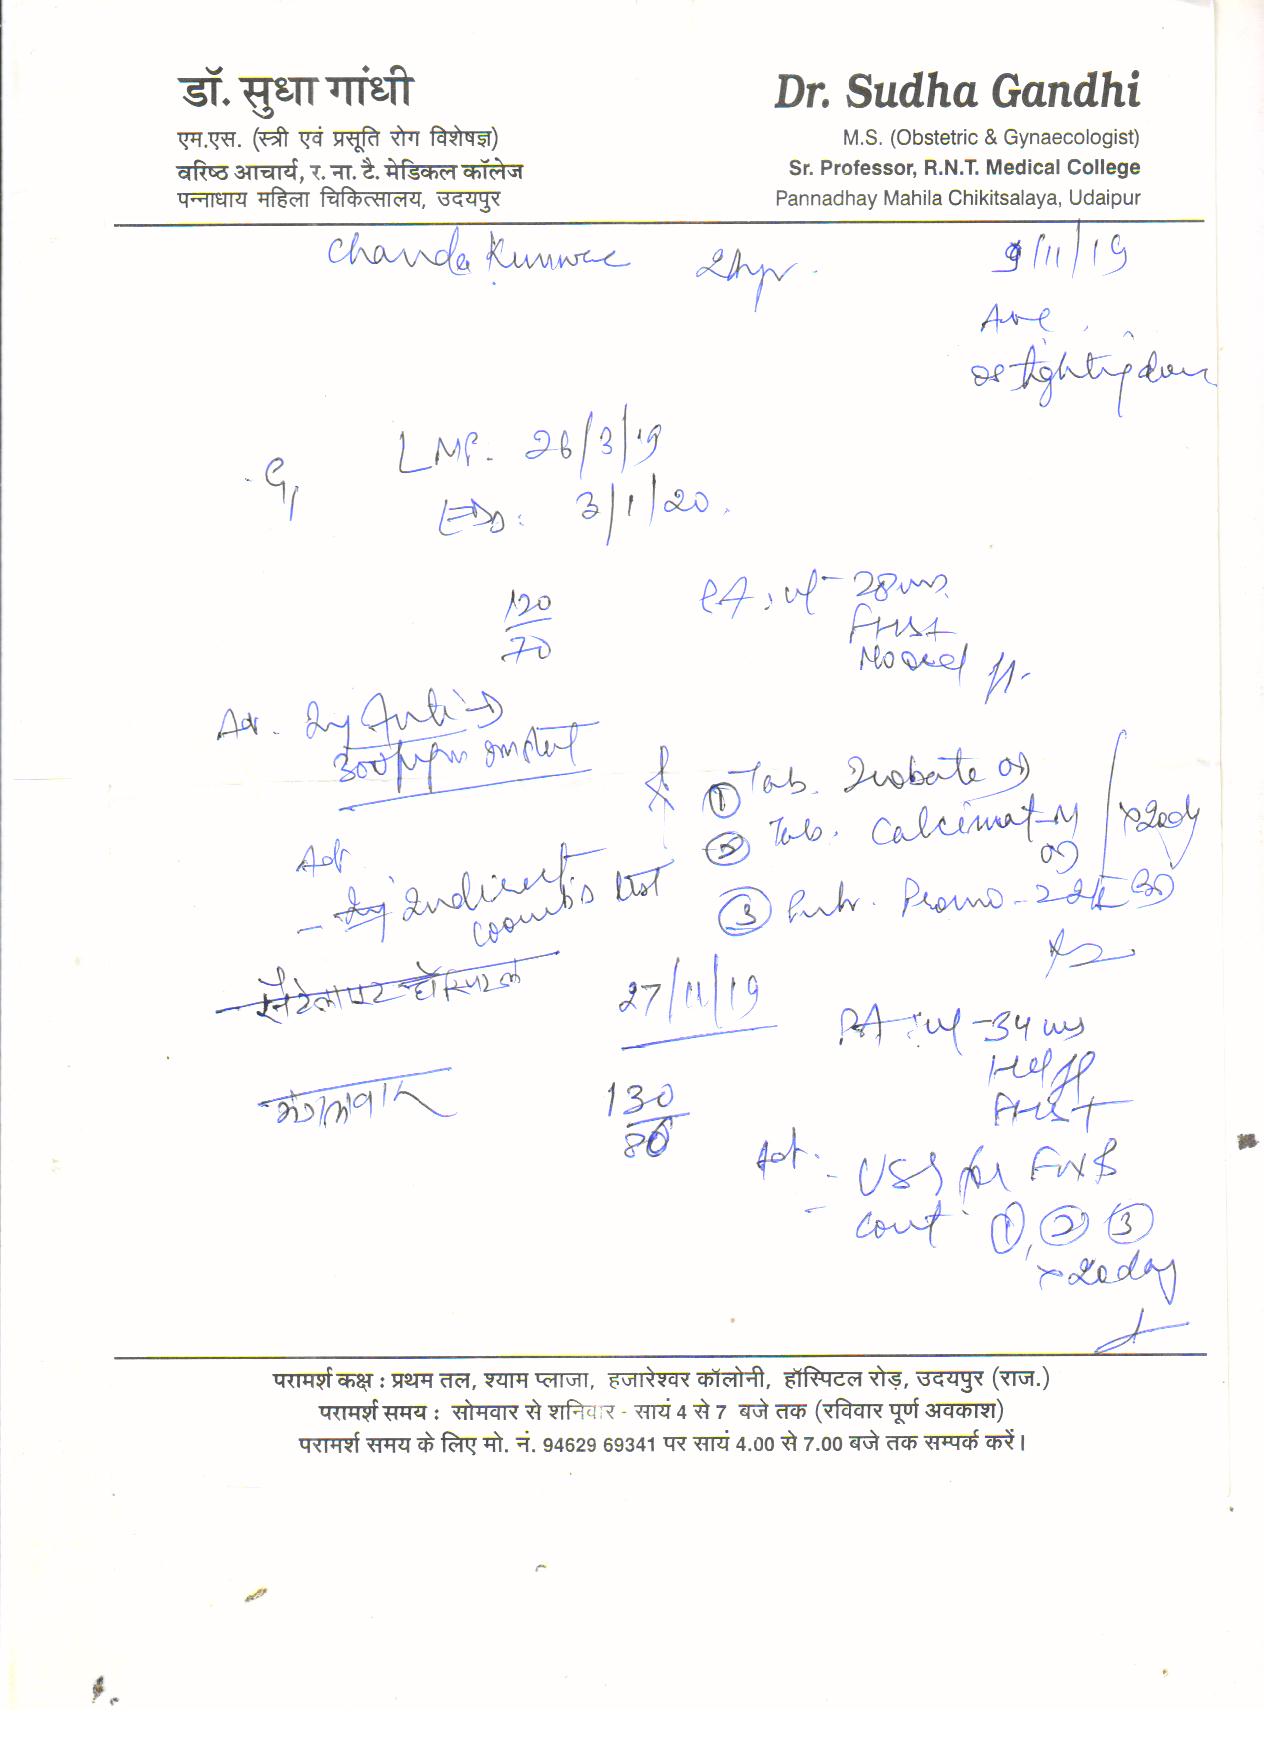 डॉ. सुधा गांधी
एम.एस. (स्त्री एवं प्रसूति रोग विशेषज्ञ)
वरिष्ठ आचार्य, र. ना. टै. मेडिकल कॉलेज
पन्नाधाय महिला चिकित्सालय, उदयपुर
Dr. Sudha Gandhi
M.S. (Obstetric & Gynaecologist)
Sr. Professor, R.N.T. Medical College
Pannadhay Mahila Chikitsalaya, Udaipur
Chanda Kunwar
9/11/19
LMP. 26/3/19
EDD: 3/1/20.
120
70
PA: ut - 28 wks
FHS +
Adv. Inj Anti-D
300 µgm
① Tab.
② Tab. Calcimax-M
③
Adv
- Indirect
coomb's test
सैटेलाइट हॉस्पिटल
मंगलवार
27/11/19
130
80
PA: ut - 34 wks
FHS +
Adv: - USG for FWB
- cont ①, ② ③
x 20 day
परामर्श कक्ष : प्रथम तल, श्याम प्लाजा, हजारेश्वर कॉलोनी, हॉस्पिटल रोड़, उदयपुर (राज.)
परामर्श समय : सोमवार से शनिवार - सायं 4 से 7 बजे तक (रविवार पूर्ण अवकाश)
परामर्श समय के लिए मो. नं. 94629 69341 पर सायं 4.00 से 7.00 बजे तक सम्पर्क करें।